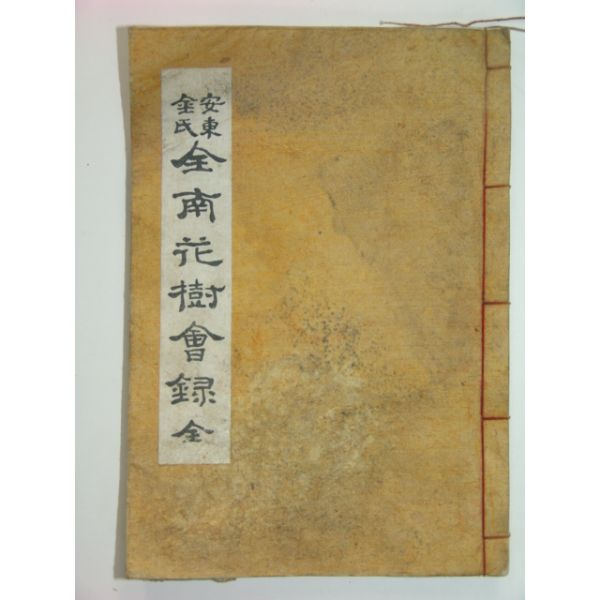 安東
金氏
全南花樹會録 全